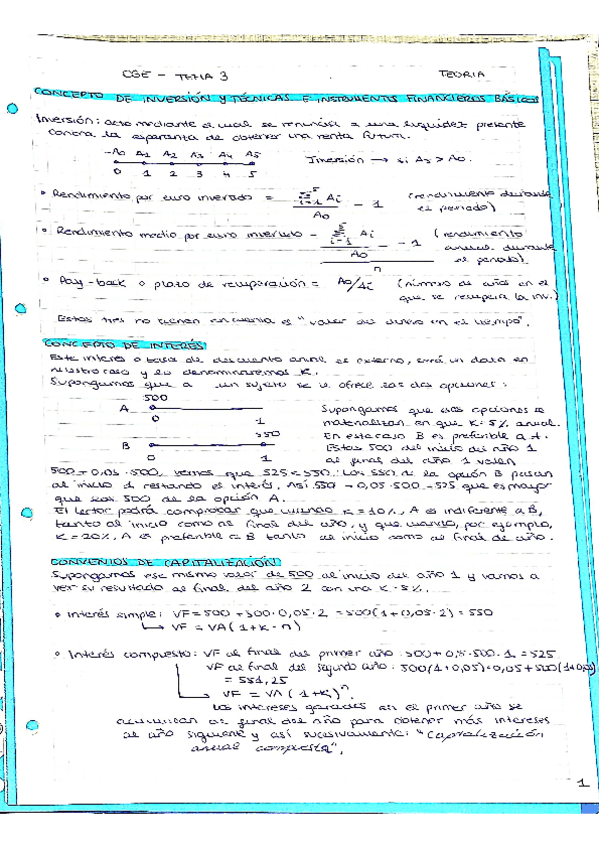 CGE - TEMA 3 TEORIA
CONCEPTO DE INVERSIÓN Y TÉCNICAS E INSTRUMENTS FINANCIEROS BÁSICOS
Inversión: acto mediante el cual se renuncia a una liquidez presente
contra la esperanza de obtener una renta futura.
-A0 A1 A2 A3 A4 A5
0 1 2 3 4 5
Inversión → si A5 > A0.
• Rendimiento por euro invertido = Σ(i=1→5) Ai / A0 - 1 (rendimiento durante
el periodo)
• Rendimiento medio por euro invertido = (Σ(i=1→5) Ai / A0 - 1) / n (rendimiento
anual durante
el periodo).
• Pay-back o plazo de recuperación = A0/Ai (número de años en el
que se recupera la inv.)
Estos tres no tienen en cuenta es "valor del dinero en el tiempo".
CONCEPTO DE INTERÉS
Este interés o tasa de descuento anual es externo, será un dato en
nuestro caso y lo denominaremos K.
Supongamos que a un sujeto se le ofrece las dos opciones:
500
A
0 1
550
B
0 1
Supongamos que esas opciones se
materializan en que K=5% anual.
En este caso B es preferible a A.
Estos 500 del inicio del año 1
al final del año 1 valen
500 + 0,05 · 500, vemos que 525 < 550. Los 550 de la opción B pasan
al inicio 1 restando el interés. Así 550 - 0,05·500 = 525 que es mayor
que los 500 de la opción A.
El lector podrá comprobar que cuando K=10%, A es indiferente a B,
tanto al inicio como al final del año, y que cuando, por ejemplo,
K=20%, A es preferible a B tanto al inicio como al final de año.
CONVENIOS DE CAPITALIZACIÓN
Supongamos ese mismo valor de 500 al inicio del año 1 y vamos a
ver su resultado al final del año 2 con una K=5%.
• Interés simple: VF = 500 + 500·0,05·2 = 500(1+0,05·2) = 550
→ VF = VA(1+K·n)
• Interés compuesto: VF al final del primer año: 500 + 0,5·500·1 = 525
VF al final del segundo año: 500(1+0,05)·0,05+500(1+0,05)
= 551,25
→ VF = VA (1+K)ⁿ.
Los intereses ganados en el primer año se
acumulan al final del año para obtener más intereses
al año siguiente y así sucesivamente: "capitalización
anual compuesta".
1